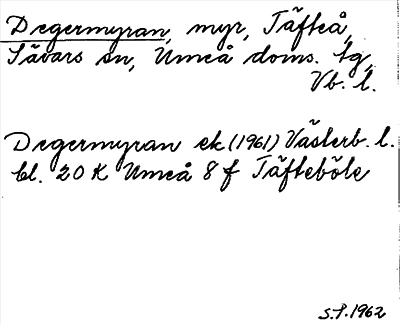 Degermyran, myr, Täfteå,
Sävars sn, Umeå doms. tg,
Vb. l.
Degermyran ek (1961) Västerb. l.
bl. 20 K Umeå 8 f Täfteböle
S.P. 1962